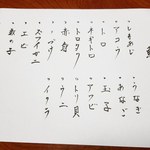 ・しまあじ
・アコウ
・トロ
・ネギトロ
・トロタク
・赤貝
・づけ
・ズワイガニ
・エビ
・数の子
・うなぎ
・あなご
・玉子
・アワビ
・トリ貝
・ウニ
・イクラ